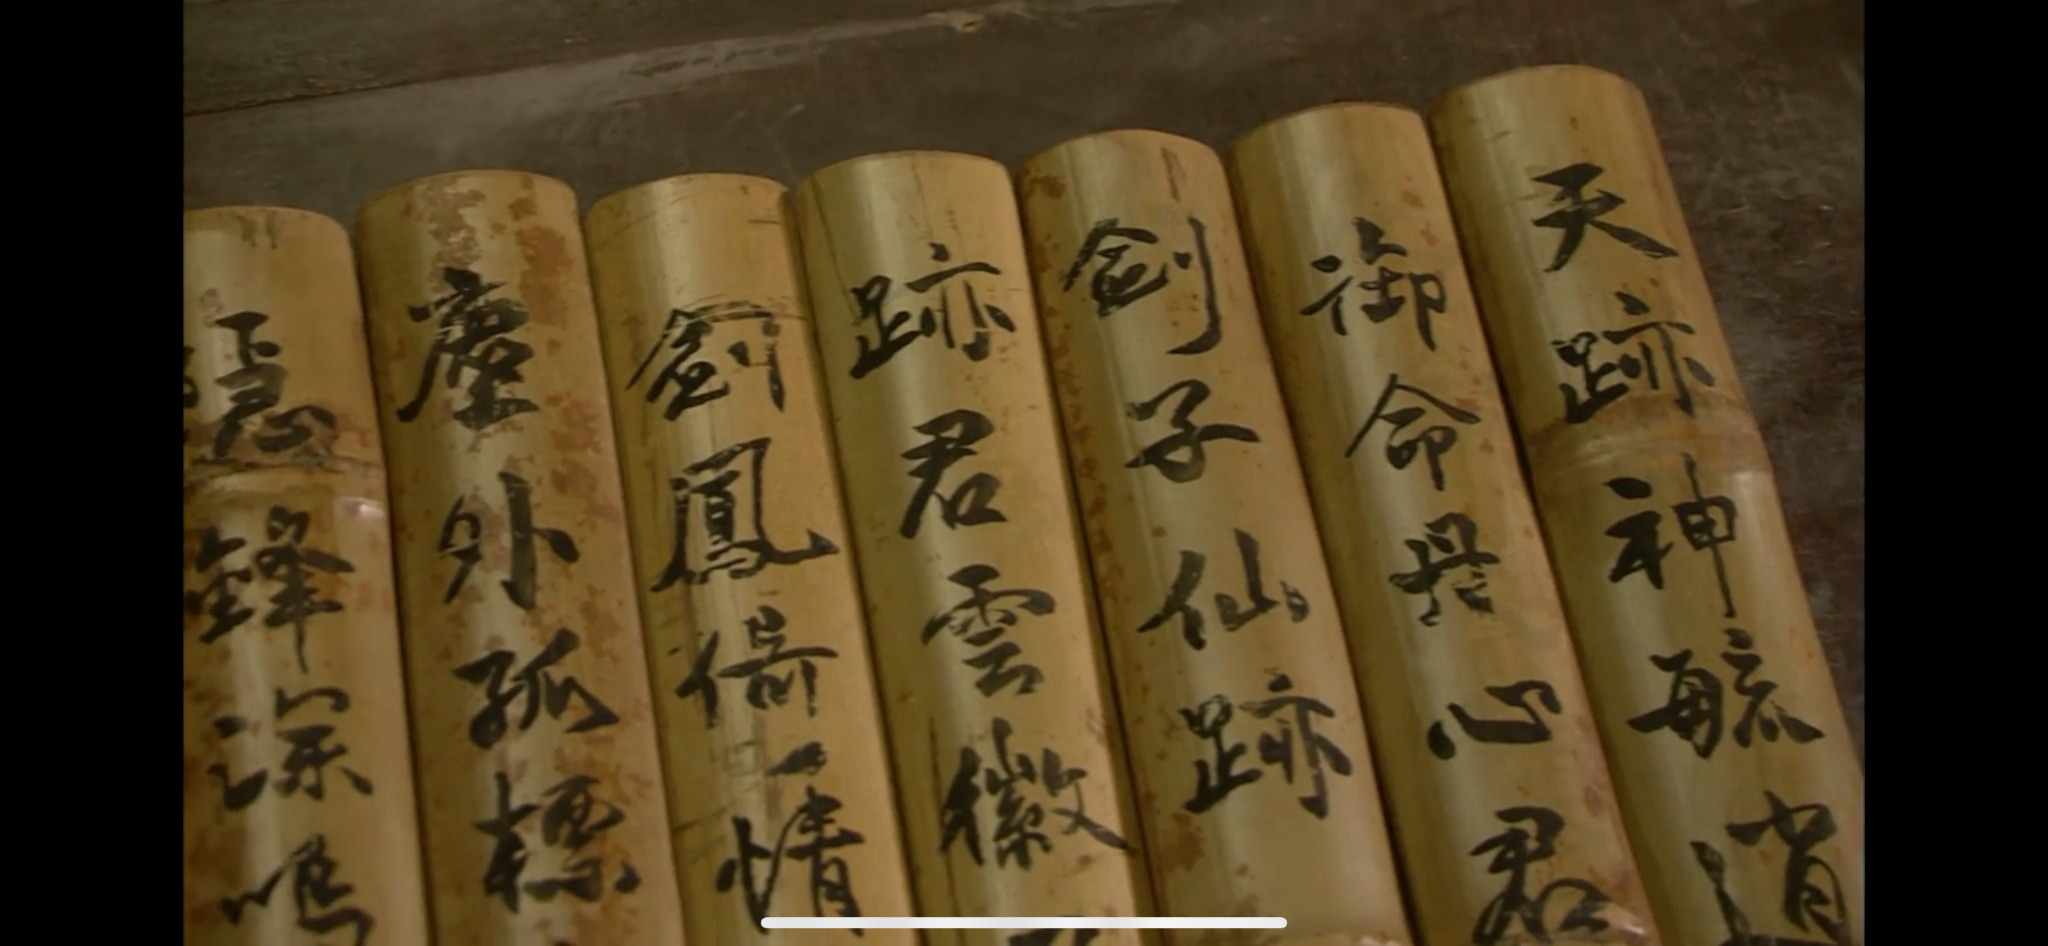 天跡神毓逍
御命丹心君
劍子仙跡
跡君雲徽
劍鳳倚情
塵外孤標
隱鋒深